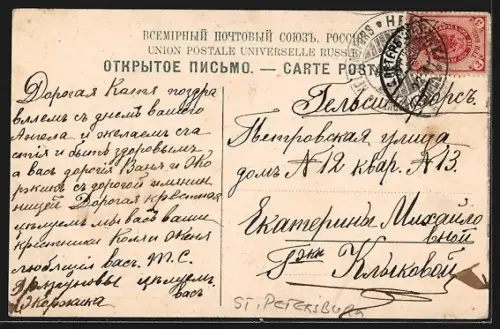 ВСЕМІРНЫЙ ПОЧТОВЫЙ СОЮЗЪ. РОССІЯ
UNION POSTALE UNIVERSELLE RUSSIE
ОТКРЫТОЕ ПИСЬМО. — CARTE POSTALE
Дорогая Катя поздра
вляемъ съ днемъ вашего
Ангела и желаемъ сча
стія и быть здоровымъ
а васъ дорогія Ваня и
съ дорогой именин
ницей Дорогая крестная
цѣлуемъ мы васъ ваши
крестники Коля Женя
любящія васъ. М. С.
цѣлуемъ
васъ
Гельсингфорсъ.
Петровская улица
домъ № 12 квар. № 13.
Екатерины Михайло
вной
Г-жи Клыковой
ST. PETERSBURG